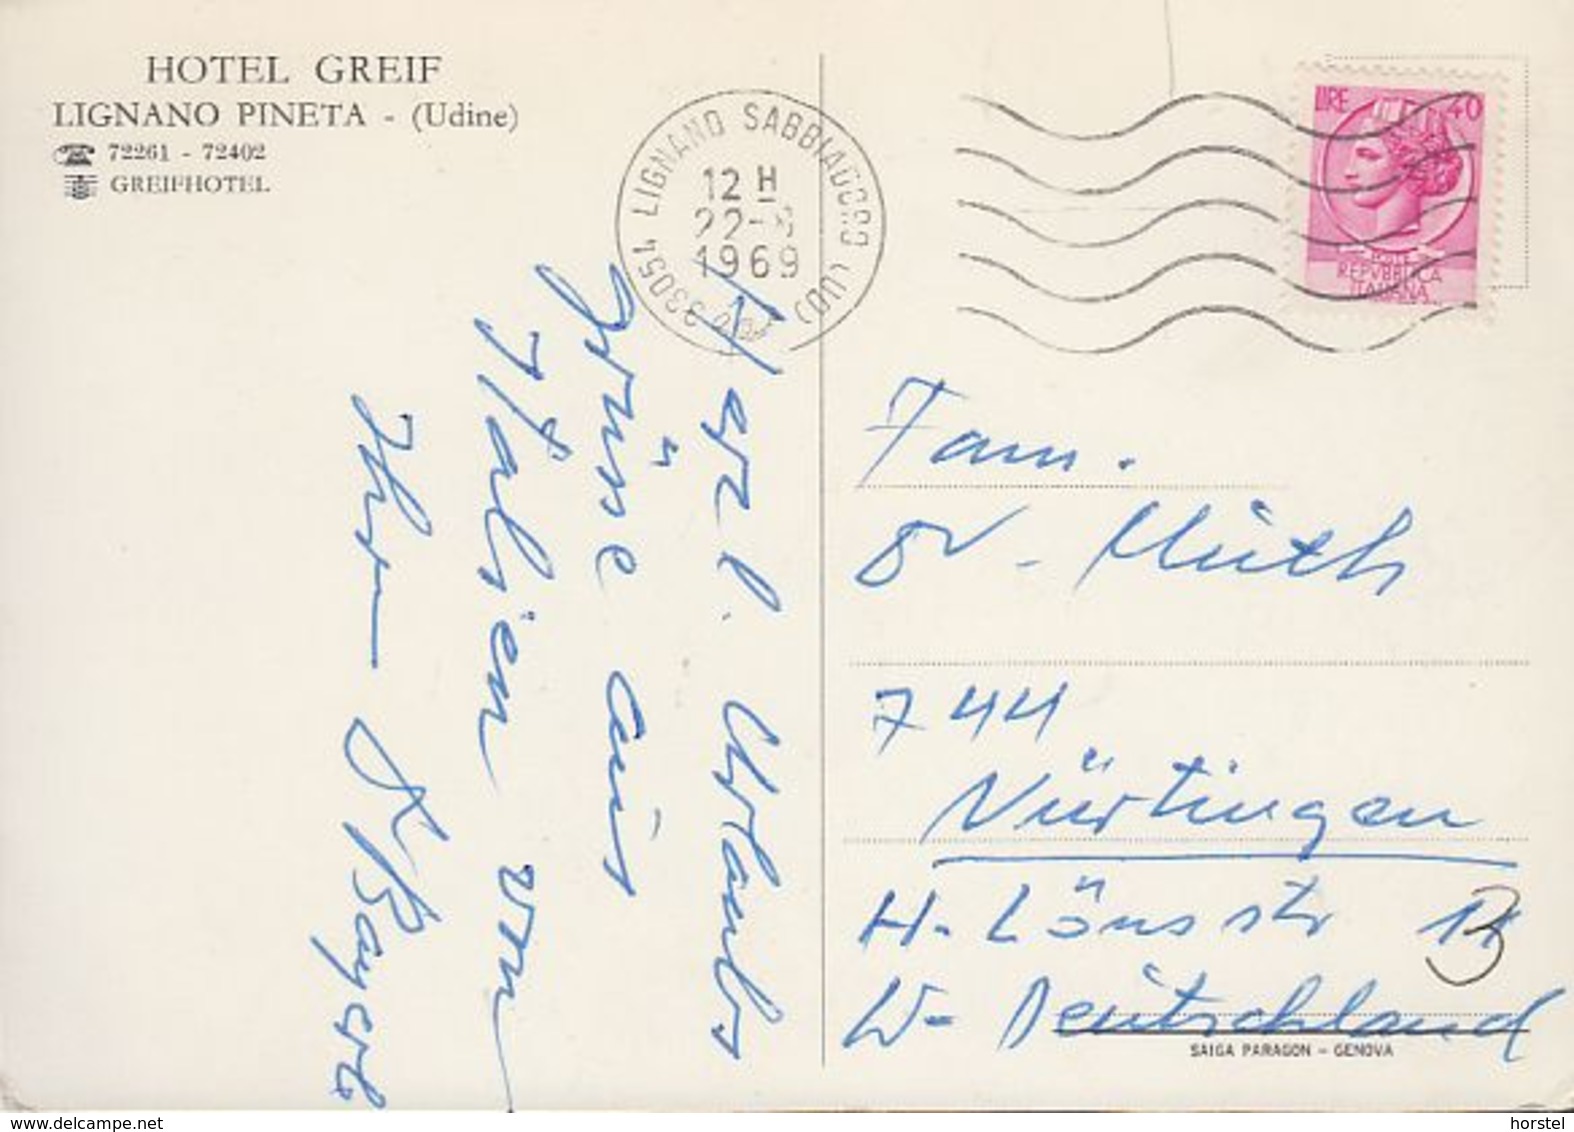 HOTEL GREIF
LIGNANO PINETA - (Udine)
72261 - 72402
GREIFHOTEL
33054 LIGNANO SABBIADORO (UD)
12 H
22-8
1969
LIRE 40
POSTE
REPVBBLICA
ITALIANA
Herzl. Urlaubs
grüsse aus
Italien von
Ihrer
Fam.
Dr. Huth
744
Nürtingen
H. Lönsstr
W-Deutschland
SAIGA PARAGON - GENOVA
www.delcampe.net
horstel